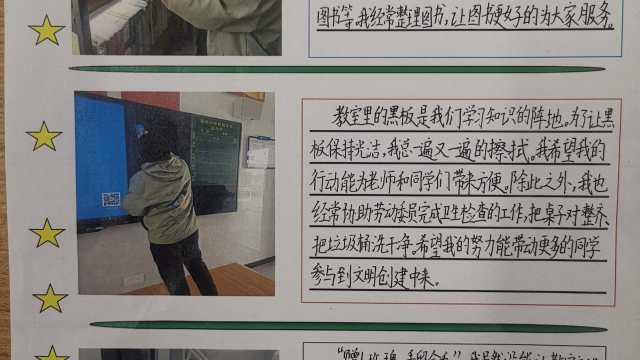 图书等。我经常整理图书,让图书更好的为大家服务。
教室里的黑板是我们学习知识的阵地。为了让黑
板保持光洁,我总一遍又一遍的擦拭。我希望我的
行动能为老师和同学们带来方便。除此之外,我也
经常协助劳动委员完成卫生检查的工作,把桌子对整齐、
把垃圾桶洗干净。希望我的努力能带动更多的同学
参与到文明创建中来。